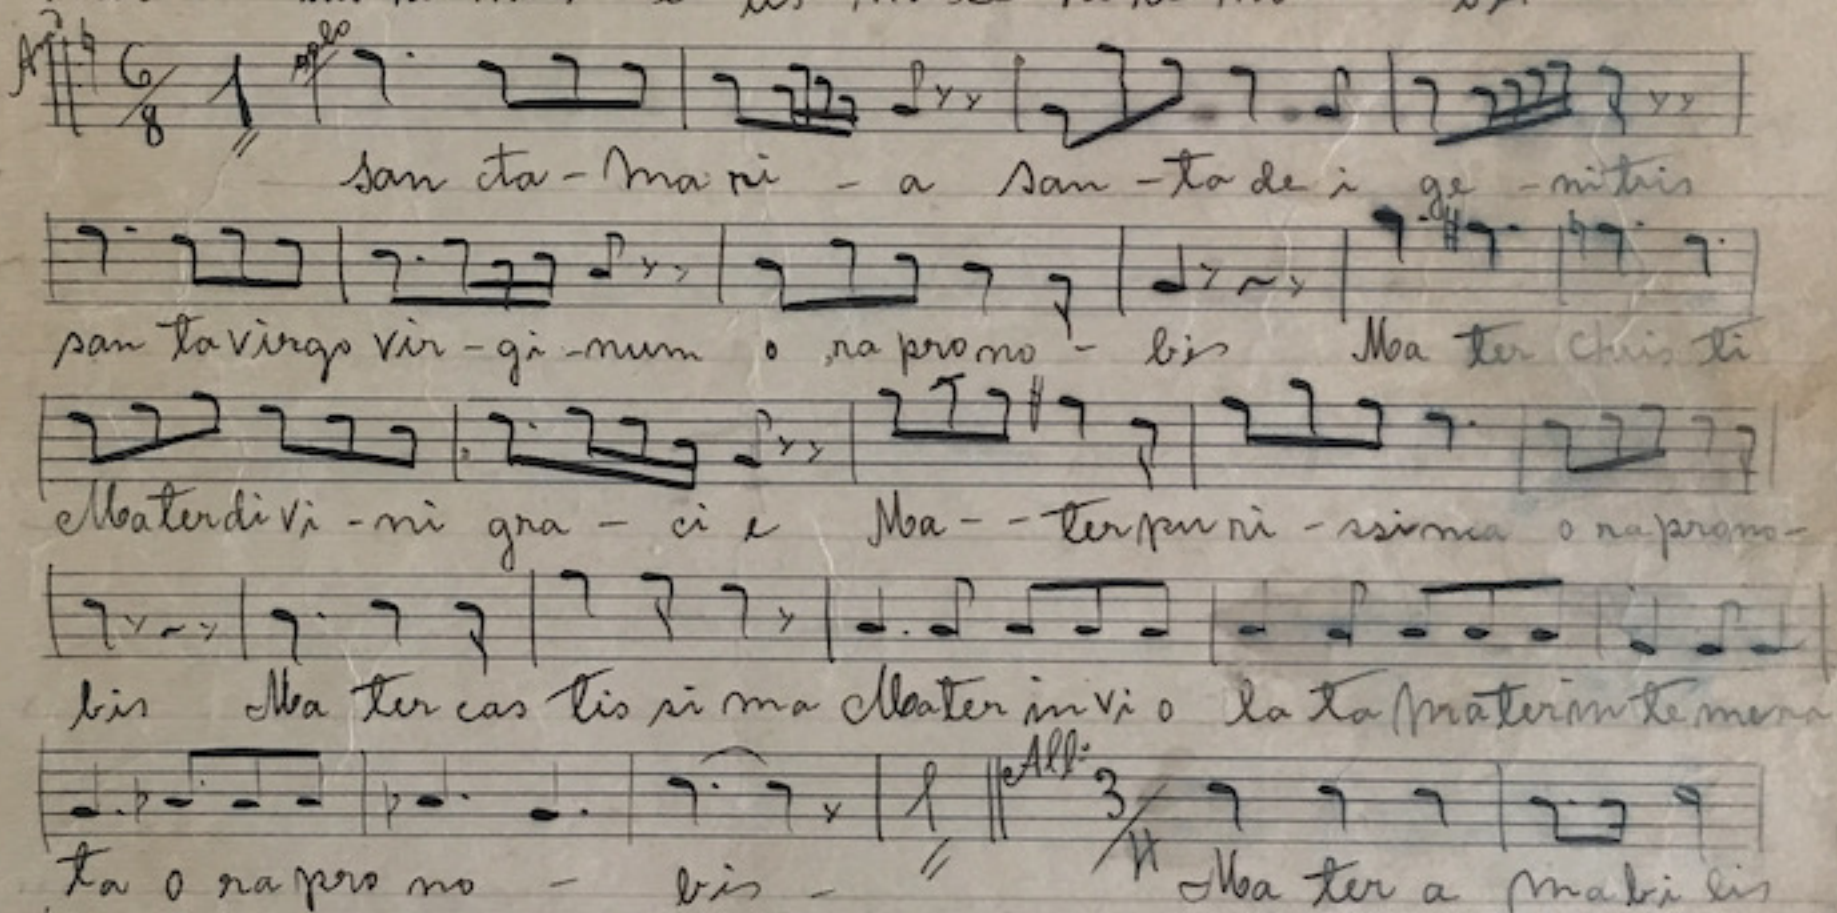 6/8 1 solo
san cta - Ma ri - a san - ta de i ge - nitris
san ta virgo vir - gi - num o ra pro no - bis Ma ter Chris ti
Mater di vi - ni gra - ci e Ma - - ter pu ri - ssima o ra pro no -
bis Ma ter cas tis si ma Mater in vi o la ta mater in te mera
All:
3/4
ta o ra pro no - bis - Ma ter a mabi lis